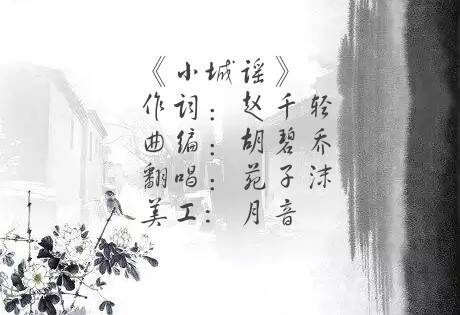 《小城谣》
作词：赵千轻
曲编：胡碧乔
翻唱：苑子沫
美工：月音